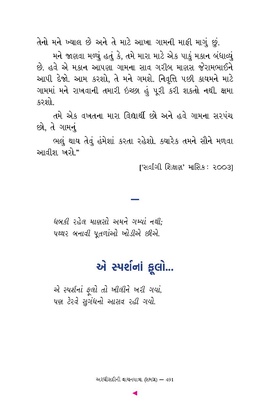 તેનો મને ખ્યાલ છે અને તે માટે આખા ગામની માફી માગું છું.
મને જાણવા મળ્યું હતું કે, તમે મારા માટે એક પાકું મકાન બંધાવ્યું
છે. હવે એ મકાન આપણા ગામના સાવ ગરીબ માણસ જેરામભાઈને
આપી દેજો. આમ કરશો, તે મને ગમશે. નિવૃત્તિ પછી કાયમને માટે
ગામમાં મને રાખવાની તમારી ઇચ્છા હું પૂરી કરી શકતો નથી. ક્ષમા
કરશો.
તમે એક વખતના મારા વિદ્યાર્થી છો અને હવે ગામના સરપંચ
છો, તે ગામનું
ભલું થાય તેવું હંમેશાં કરતા રહેશો. ક્યારેક તમને સૌને મળવા
આવીશ ખરો.”
[‘સર્વાંગી શિક્ષણ’ માસિક : ૨૦૦૩]
ધબકી રહેલ માણસો અમને ગમ્યાં નથી;
પથ્થર બનાવી પૂતળાંઓ ખોડીએ છીએ.
એ સ્પર્શનાં ફૂલો...
એ સ્પર્શનાં ફૂલો તો ખીલીને ખરી ગયાં.
પણ ટેરવે સુગંધનો આસવ રહી ગયો.